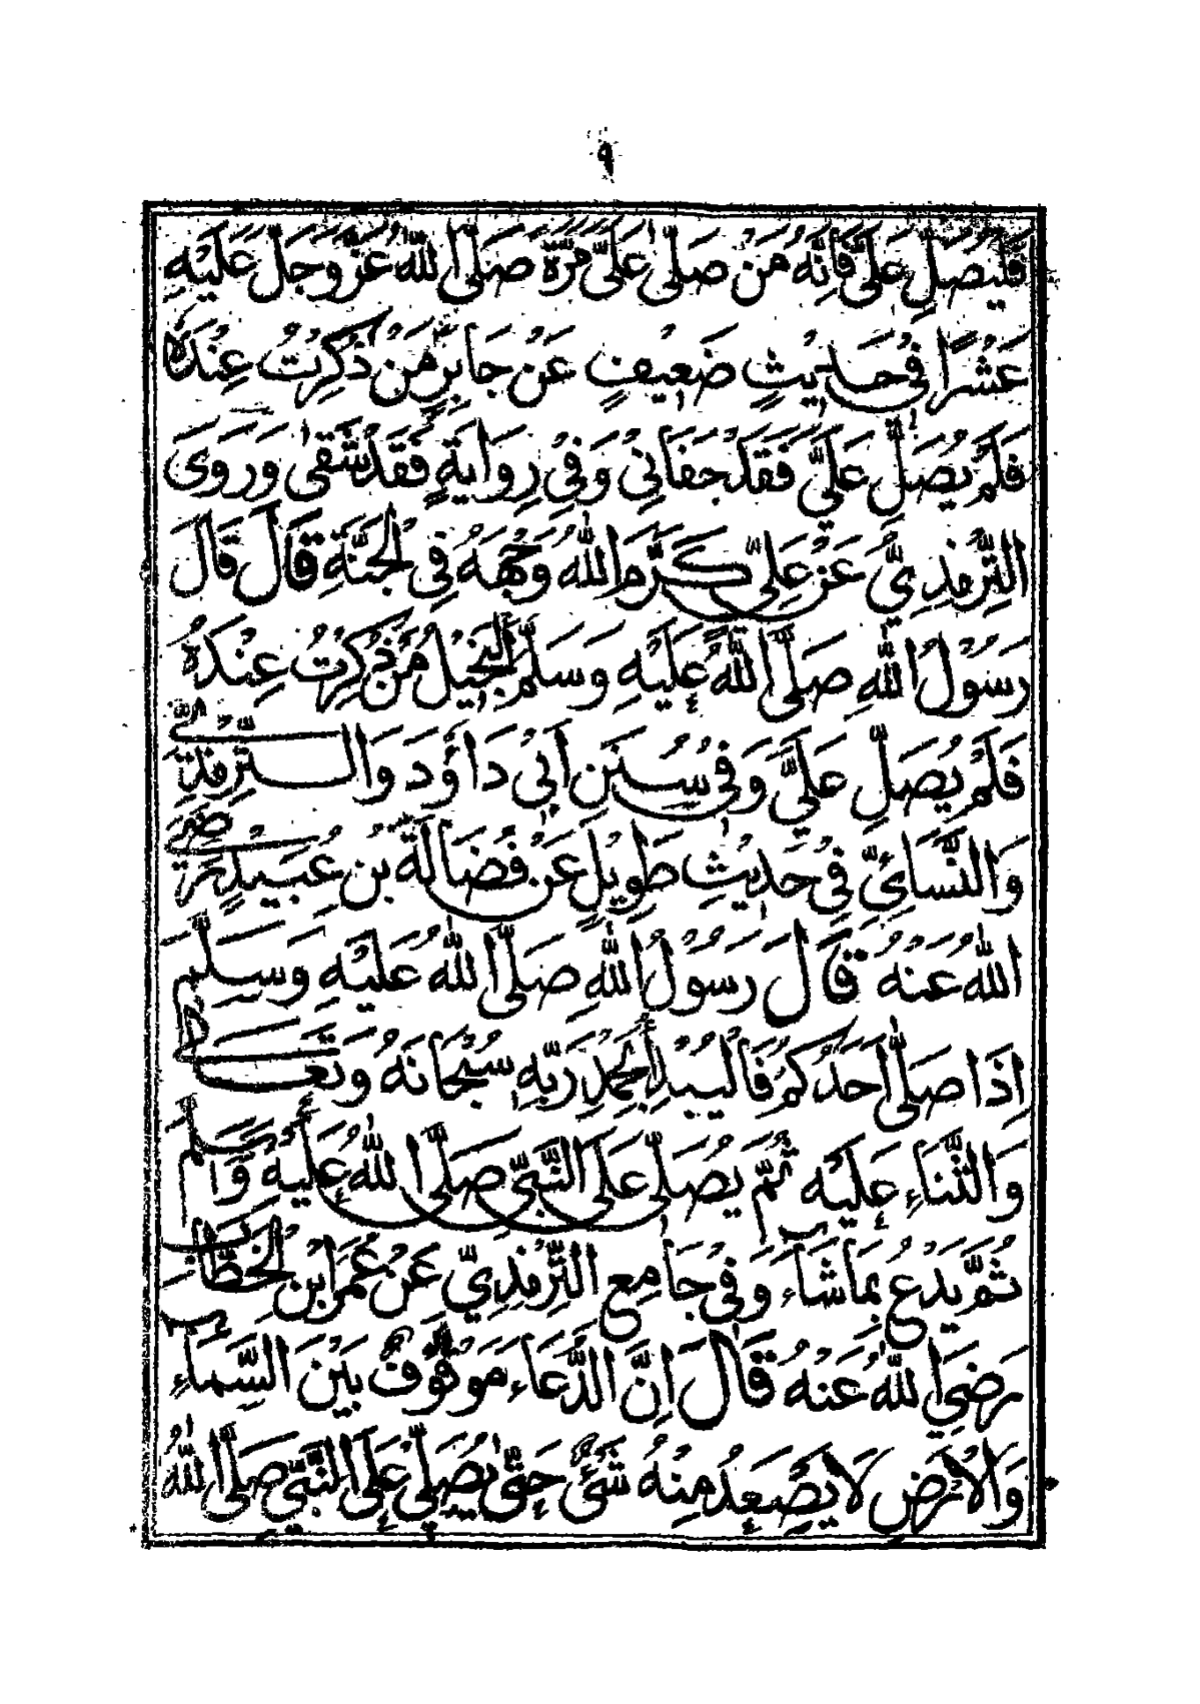 ٩
فَلْيُصَلِّ عَلَيَّ فَاِنَّهُ مَنْ صَلّٰى عَلَيَّ مَرَّةً صَلَّى اللّٰهُ عَزَّ وَجَلَّ عَلَيْهِ
عَشْرًا وَفِي حَدِيْثٍ ضَعِيفٍ عَنْ جَابِرٍ مَنْ ذُكِرْتُ عِنْدَهُ
فَلَمْ يُصَلِّ عَلَيَّ فَقَدْ جَفَانِي وَفِيْ رِوَايَةٍ فَقَدْ شَقِىَ وَرَوَى
التِّرْمِذِيُّ عَنْ عَلِيٍّ كَرَّمَ اللّٰهُ وَجْهَهُ فِي الْجَنَّةِ قَالَ قَالَ
رَسُوْلُ اللّٰهِ صَلَّى اللّٰهُ عَلَيْهِ وَسَلَّمَ اَلْبَخِيْلُ مَنْ ذُكِرْتُ عِنْدَهُ
فَلَمْ يُصَلِّ عَلَيَّ وَفِيْ سُنَنِ اَبِيْ دَاوُدَ وَالتِّرْمِذِيِّ
وَالنَّسَائِيِّ فِيْ حَدِيْثٍ طَوِيْلٍ عَنْ فُضَالَةَ بْنِ عُبَيْدٍ رَضِيَ
اللّٰهُ عَنْهُ قَالَ رَسُوْلُ اللّٰهِ صَلَّى اللّٰهُ عَلَيْهِ وَسَلَّمَ
اِذَا صَلّٰى اَحَدُكُمْ فَالْيَبْدَأْ بِحَمْدِ رَبِّهِ سُبْحَانَهُ وَتَعَالٰى
وَالثَّنَاءِ عَلَيْهِ ثُمَّ يُصَلِّى عَلَى النَّبِيِّ صَلَّى اللّٰهُ عَلَيْهِ وَاٰ وَسَلَّمَ
ثُمَّ يَدْعُ بِمَا شَاءَ وَفِيْ جَامِعِ التِّرْمِذِيِّ عَنْ عُمَرَ ابْنِ الْخَطَّابِ
رَضِيَ اللّٰهُ عَنْهُ قَالَ اِنَّ الدُّعَاءَ مَوْقُوْفٌ بَيْنَ السَّمَاءِ
وَالْاَرْضِ لَا يَصْعَدُ مِنْهُ شَيْءٌ حَتّٰى يُصَلِّيَ عَلَى النَّبِيِّ صَلَّى اللّٰهُ